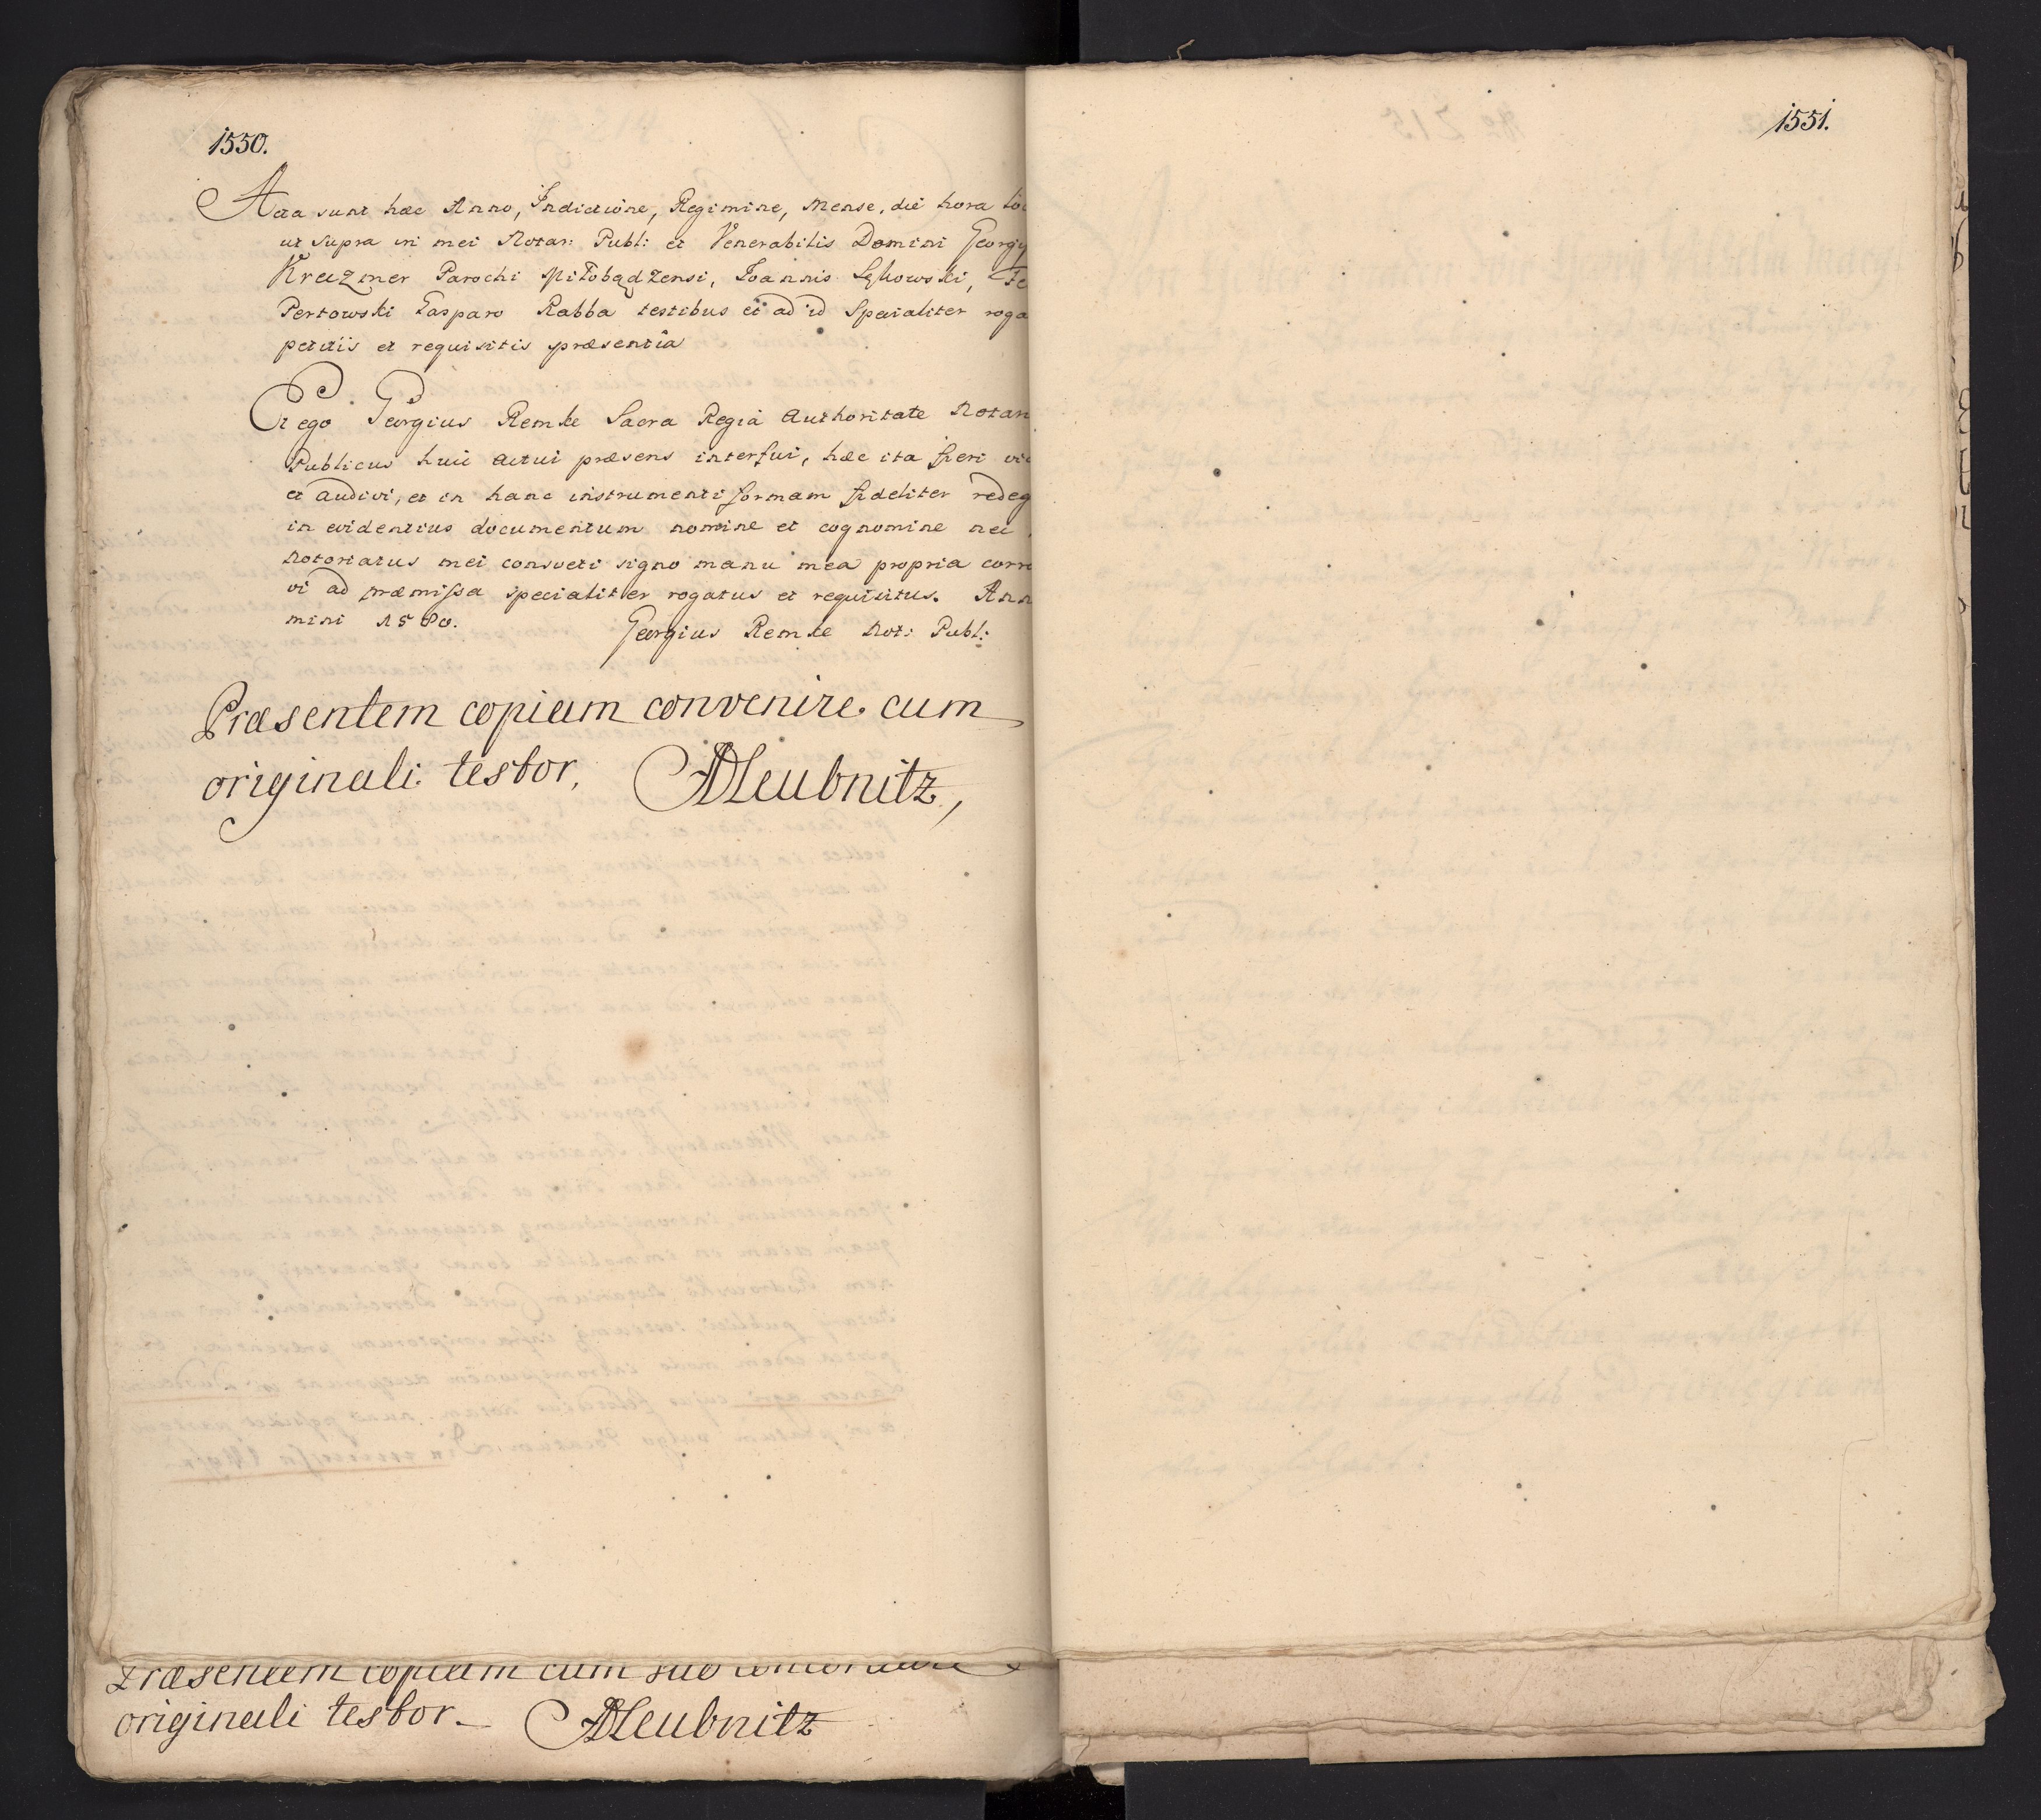 1550.
Acta sunt hæc Anno, Indictione, Regimine, Mense, die hora
ut supra in mei Notar: Publ: et Venerabilis Domini Georgy
Kreczmer Parochi Miłobądzensi, Ioannis Lękowski,
Pertowski Casparo Rabba testibus et ad id Specialiter roga
petitis et requisitis præsentia
Et ego Georgius Remke Sacra Regiâ Authoritate Notari
Publicus huic actui præsens interfui, hæc ita fieri vi
et audivi, et in hanc instrumenti formam fideliter redeg
in evidentius documentum nomine et cognomine nec
Notoriatus mei consveti signo manu mea propria corro
vi ad præmissa specialiter rogatus et requisitus. Ann
mini 1580.
Georgius Remke Not: Publ:
Præsentem copiam convenire cum
originali testor, ADLeubnitz,
Præsentem copiam cum suo concordare
originali testor. ADLeubnitz
1551.